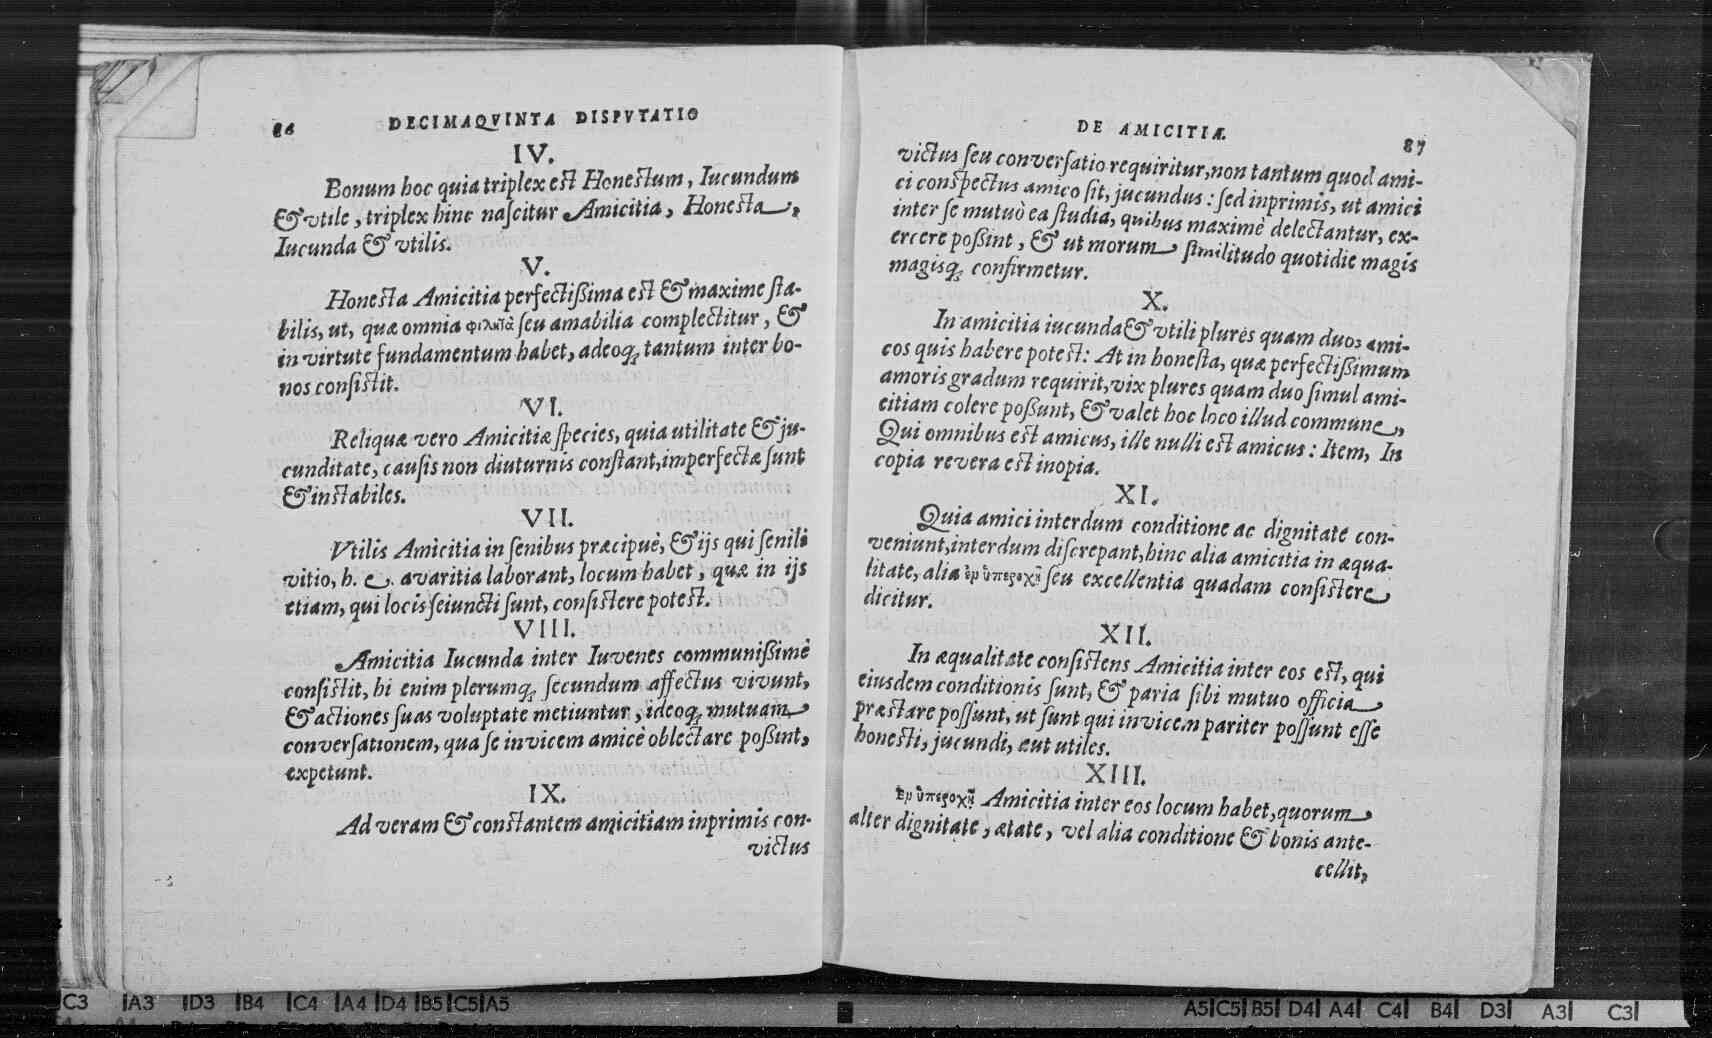 86 DECIMAQVINTA DISPVTATIO
IV.
Bonum hoc quia triplex est Honestum, Iucundum
& vtile, triplex hinc nascitur Amicitia, Honesta,
Iucunda & vtilis.
V.
Honesta Amicitia perfectißima est & maxime sta-
bilis, ut, quæ omnia φιλητὰ seu amabilia complectitur, &
in virtute fundamentum habet, adeoq; tantum inter bo-
nos consistit.
VI.
Reliquæ vero Amicitiæ species, quia utilitate & ju-
cunditate, causis non diuturnis constant, imperfectæ sunt
& instabiles.
VII.
Vtilis Amicitia in senibus præcipuè, & ijs qui senili
vitio, h. e. avaritia laborant, locum habet, quæ in ijs
etiam, qui locis seiuncti sunt, consistere potest.
VIII.
Amicitia Iucunda inter Iuvenes communißimè
consistit, hi enim plerumq; secundum affectus vivunt,
& actiones suas voluptate metiuntur, ideoq; mutuam
conversationem, qua se invicem amicè oblectare poßint,
expetunt.
IX.
Ad veram & constantem amicitiam inprimis con-
victus
DE AMICITIÆ. 87
victus seu conversatio requiritur, non tantum quod ami-
ci conspectus amico sit, jucundus: sed inprimis, ut amici
inter se mutuò ea studia, quibus maximè delectantur, ex-
ercere poßint, & ut morum similitudo quotidie magis
magisq; confirmetur.
X.
In amicitia iucunda & vtili plures quam duos ami-
cos quis habere potest: At in honesta, quæ perfectißimum
amoris gradum requirit, vix plures quam duo simul ami-
citiam colere poßunt, & valet hoc loco illud commune,
Qui omnibus est amicus, ille nulli est amicus: Item, In
copia revera est inopia.
XI.
Quia amici interdum conditione ac dignitate con-
veniunt, interdum discrepant, hinc alia amicitia in æqua-
litate, alia ἐν ὑπεροχῇ seu excellentia quadam consistere
dicitur.
XII.
In æqualitate consistens Amicitia inter eos est, qui
eiusdem conditionis sunt, & paria sibi mutuo officia
præstare possunt, ut sunt qui invicem pariter possunt esse
honesti, jucundi, aut utiles.
XIII.
ἐν ὑπεροχῇ Amicitia inter eos locum habet, quorum
alter dignitate, ætate, vel alia conditione & bonis ante-
cellit,
C3 A3 D3 B4 C4 A4 D4 B5 C5 A5
A5 C5 B5 D4 A4 C4 B4 D3 A3 C3